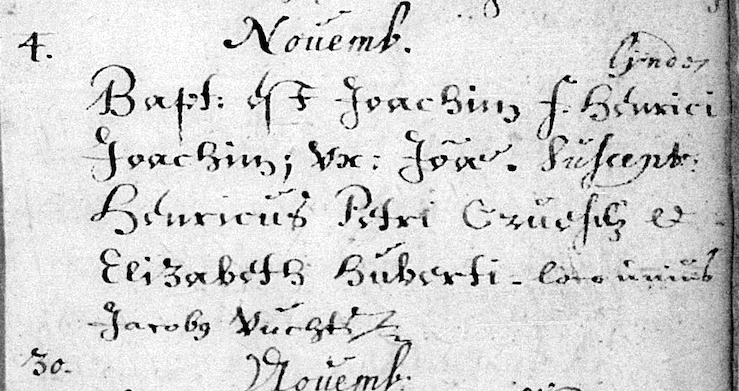 4. Novemb.
Lynde
Bapt: est Joachim f. Henrici
Joachim; Vx: Joae. Suscept:
Henricus Petri Gruesels et
Elizabeth Huberti - loco unius
Jacobus Vuchts
30. Novemb: